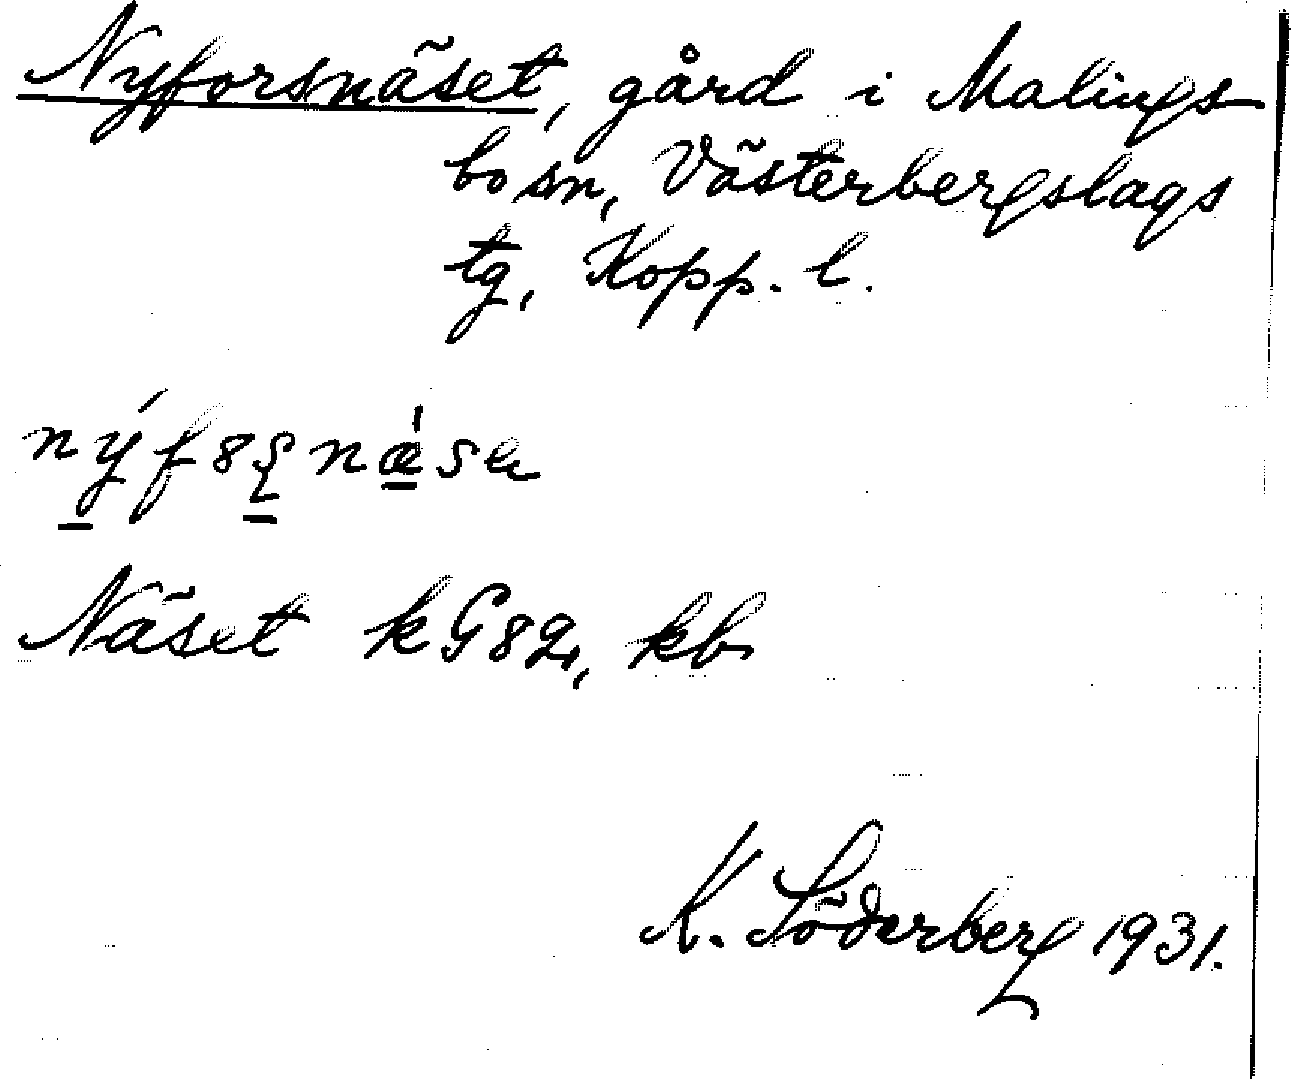 Nyforsnäset, gård i Malings-
bo sn, Västerbergslags
tg, Kopp. l.
Näset kG82, kb
K. Söderberg 1931.